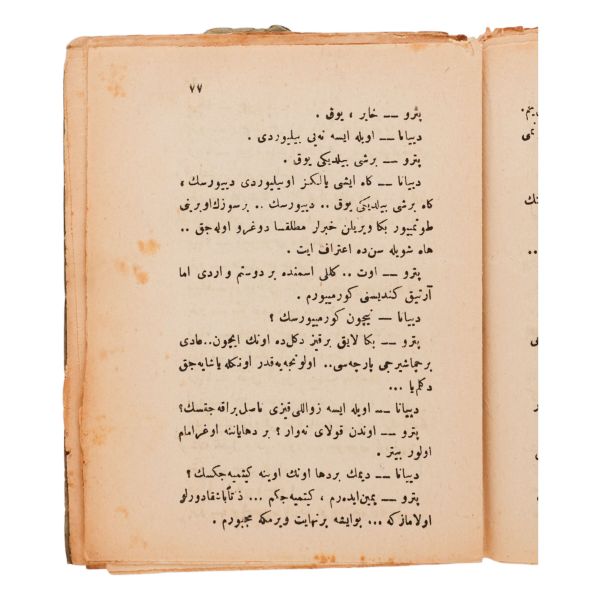 ٧٧
پترو — خاير ، يوق .
دييانا — اويله ايسه نه‌يى بيليوردى .
پترو — برشى بيلديكى يوق .
دييانا — كاه ايشى يالكز اوبيليوردى دييورسك ،
كاه برشى بيلديكى يوق .. دييورسك .. برسوزك اوبرينى
طوتميور بكا ويريلن خبرلر مطلقا دوغرو اوله‌جق ..
هاه شويله سن‌ده اعتراف ايت .
پترو — اوت .. كللى اسمنده بر دوستم واردى اما
آرتيق كنديسنى كورميورم .
دييانا — نيچون كورمييورسك ؟
پترو — بكا لايق برقيز دكل‌ده اونك ايچون .. عادى
برچماشيرجى پارچه‌سى .. اولونجه‌يه‌قدر اونكله ياشايه‌جق
دكلم‌يا ...
دييانا — اويله ايسه زواللى قيزى ناصل براقه‌جقسك؟
پترو — اوندن قولاى نه‌وار ؟ بر دهايانه اوغرامام
اولور بيتر .
دييانا — ديمك بردها اونك اوينه كيتميه‌جكسك ؟
پترو — يمين‌ايده‌رم ، كيتميه‌جكم ... ذاتاً باشقا دورلو
اولامازكه ... بوايشه برنهايت ويرمكه مجبورم .